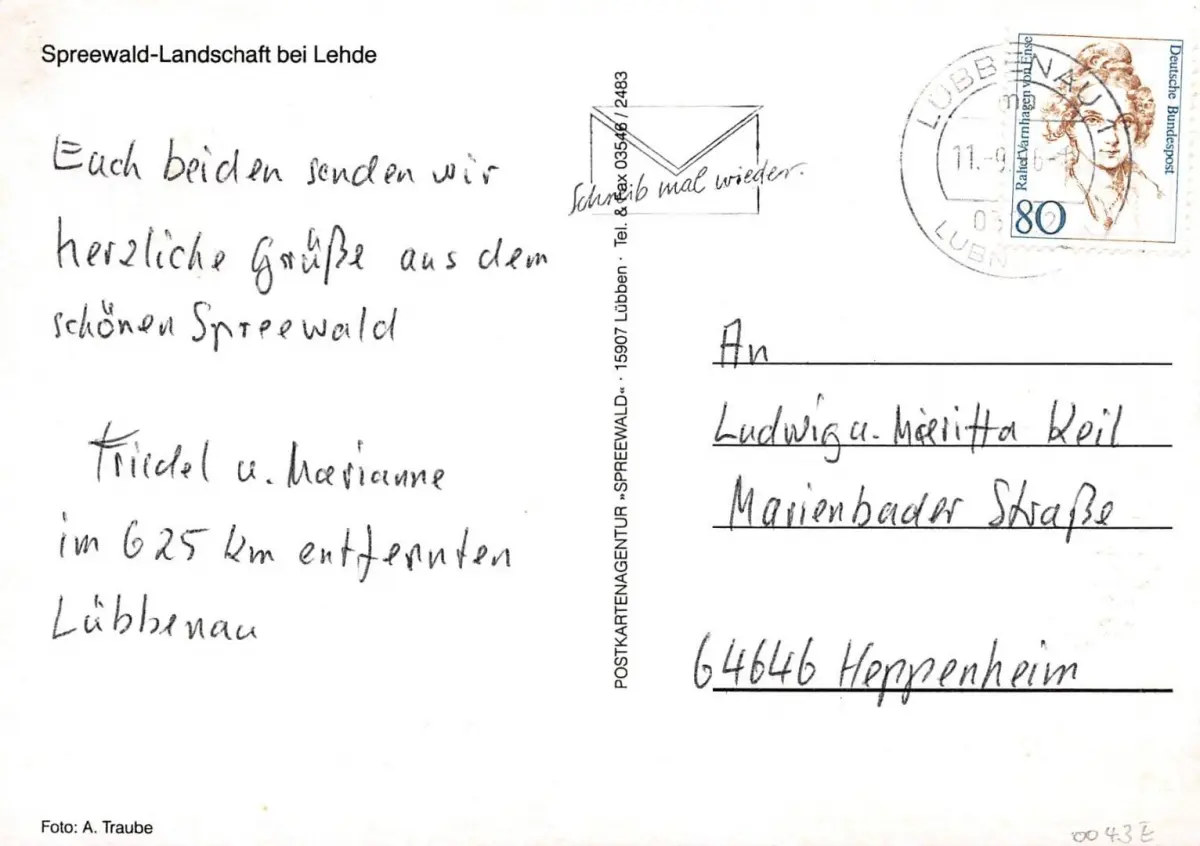 Spreewald-Landschaft bei Lehde
Euch beiden senden wir
herzliche Grüße aus dem
schönen Spreewald
Friedel u. Marianne
im 625 km entfernten
Lübbenau
Foto: A. Traube
POSTKARTENAGENTUR »SPREEWALD« · 15907 Lübben · Tel. & Fax 03546 / 2483
Schreib mal wieder.
LÜBBENAU 1
m
11.-9. 6-
03 2
LUBN
Rahel Varnhagen von Ense
Deutsche Bundespost
80
An
Ludwig u. Maritta Keil
Marienbader Straße
64646 Heppenheim
0043E